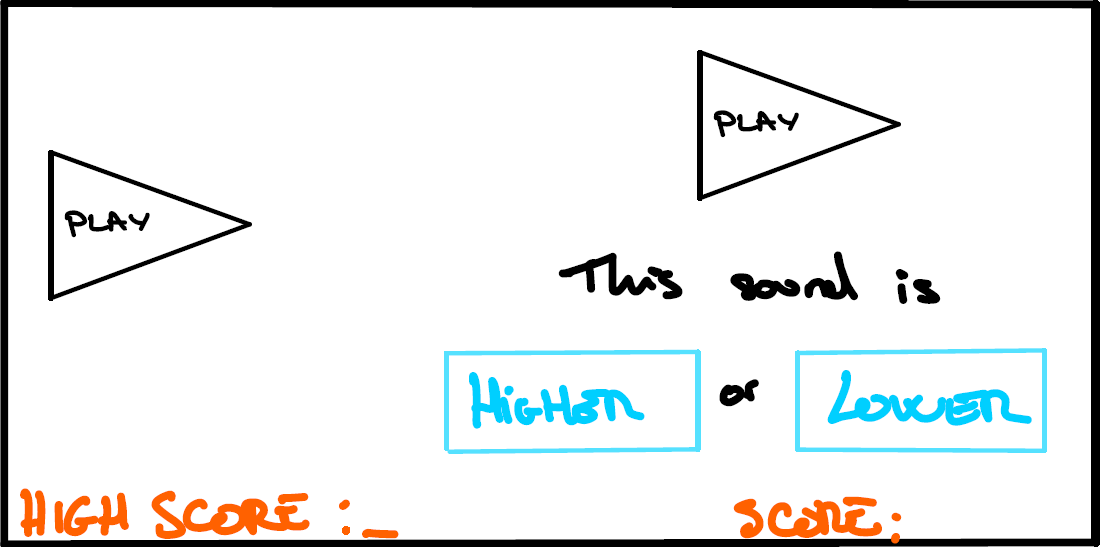 PLAY
PLAY
This sound is
HIGHER or LOWER
HIGH SCORE :_
SCORE: